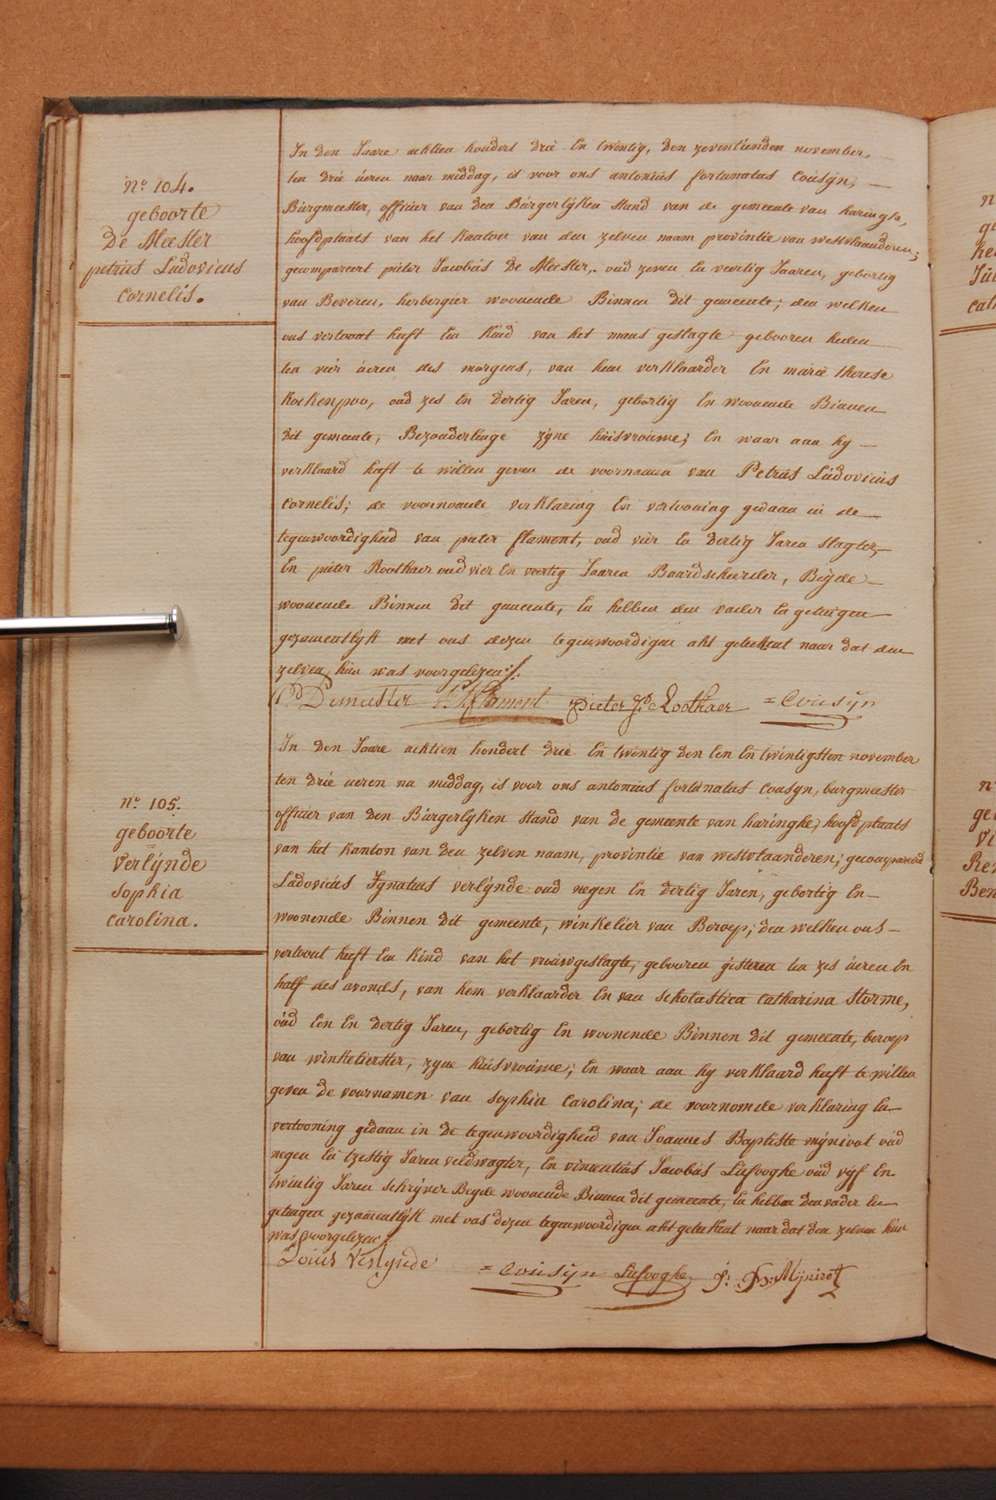 N.º 104.
geboorte
De Meester
petrus Ludovicus
Cornelis.
In den Jaare achtien hondert drië En twintig, den zeventienden november,
ten drië úeren naar middag, is voor ons antonius fortunatus Cousÿn,
Burgmeester, officier van den Burgerlijken stand van de gemeente van haringhe,
hoofdplaats van het Kanton van den zelven naam provintie van westvlaanderen;
gecompareert pieter Jacobús De Meester, oud zeven En veertig Jaaren, gebortig
van Beveren, herbergier woonende Binnen dit gemeente; den welken
ons vertoont heeft Een Kind van het mans geslagte gebooren heden
ten vier úeren des morgens, van hem verklaarder En marië therese
Kockenpoo, oud zes En dertig Jaren, gebortig En woonende Binnen
dit gemeente, Bezonderlinge zÿne húisvroúwe; En waar aan hÿ
verklaard heeft te willen geven de voornaamen van Petrus Lúdovicus
Cornelis; de voornoemde verklaring En vertooning gedaan in de
tegenwoordigheid van pieter flament, oud vier En dertig Jaren slagter,
En pieter Roothaer oud vier En veertig Jaaren Baardscheerder, Beÿde
woonende Binnen dit gemeente, En hebben den vader En getuigen
gezamentlÿk met ons dezen tegenwoordigen akt geteekent naar dat den
zelven hun was voorgelezen ./.
P D Dimeester P J Flament Pieter Jb Roothaer = Cousÿn
N.º 105.
geboorte
Verlÿnde
Sophia
Carolina.
In den Jaare achtien hondert drië En twintig den Een En twintigsten november
ten drië úeren na middag, is voor ons antonius fortunatus Cousÿn, burgmeester
officier van den Búrgerlÿken stand van de gemeente van haringhe, hoofdplaats
van het Kanton van den zelven naam, provintie van westvlaanderen; gecompareerd
Ludovicús Ignatius verlÿnde oud negen En dertig Jaren, gebortig En
woonende Binnen dit gemeente, winkelier van Beroep; den welken ons
vertoont heeft Een Kind van het vrúwgeslagte, gebooren gisteren ten zes úeren En
half des avonds, van hem verklaarder En van scholastica Catharina Storme,
oúd Een En dertig Jaren, gebortig En woonende Binnen dit gemeente, beroep
van winkelierster, zÿne húisvroúwe; En waar aan hÿ verklaard heeft te willen
geven de voornamen van Sophia Carolina; de voornomde verklaring En
vertooning gedaan in de tegenwoordigheid van Joannes Baptiste mÿnivot oúd
negen En tzestig Jaren veldwagter, En vincentiús Jacobús Liefooghe oúd vÿf En
twintig Jaren schrÿver Beÿde woonende Binnen dit gemeente, En hebben den vader En
getuigen gezamentlÿk met ons dezen tegenwoordigen akt geteekent naar dat den zelven hun
was voorgelezen
Louis Verlÿnde = Cousÿn Liefooghe J: Bte Mÿnivot